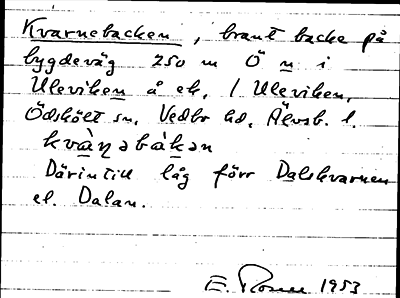 Kvarnebacken, brant backe på
bygdeväg 250 m Ö n i
Uleviken å ek. 1 Uleviken,
Ödskölt sn, Vedbo hd, Älvsb. l.
kvàṇəbàkən
Därintill låg förr Dalskvarnen
el. Dalan.
E. 1953